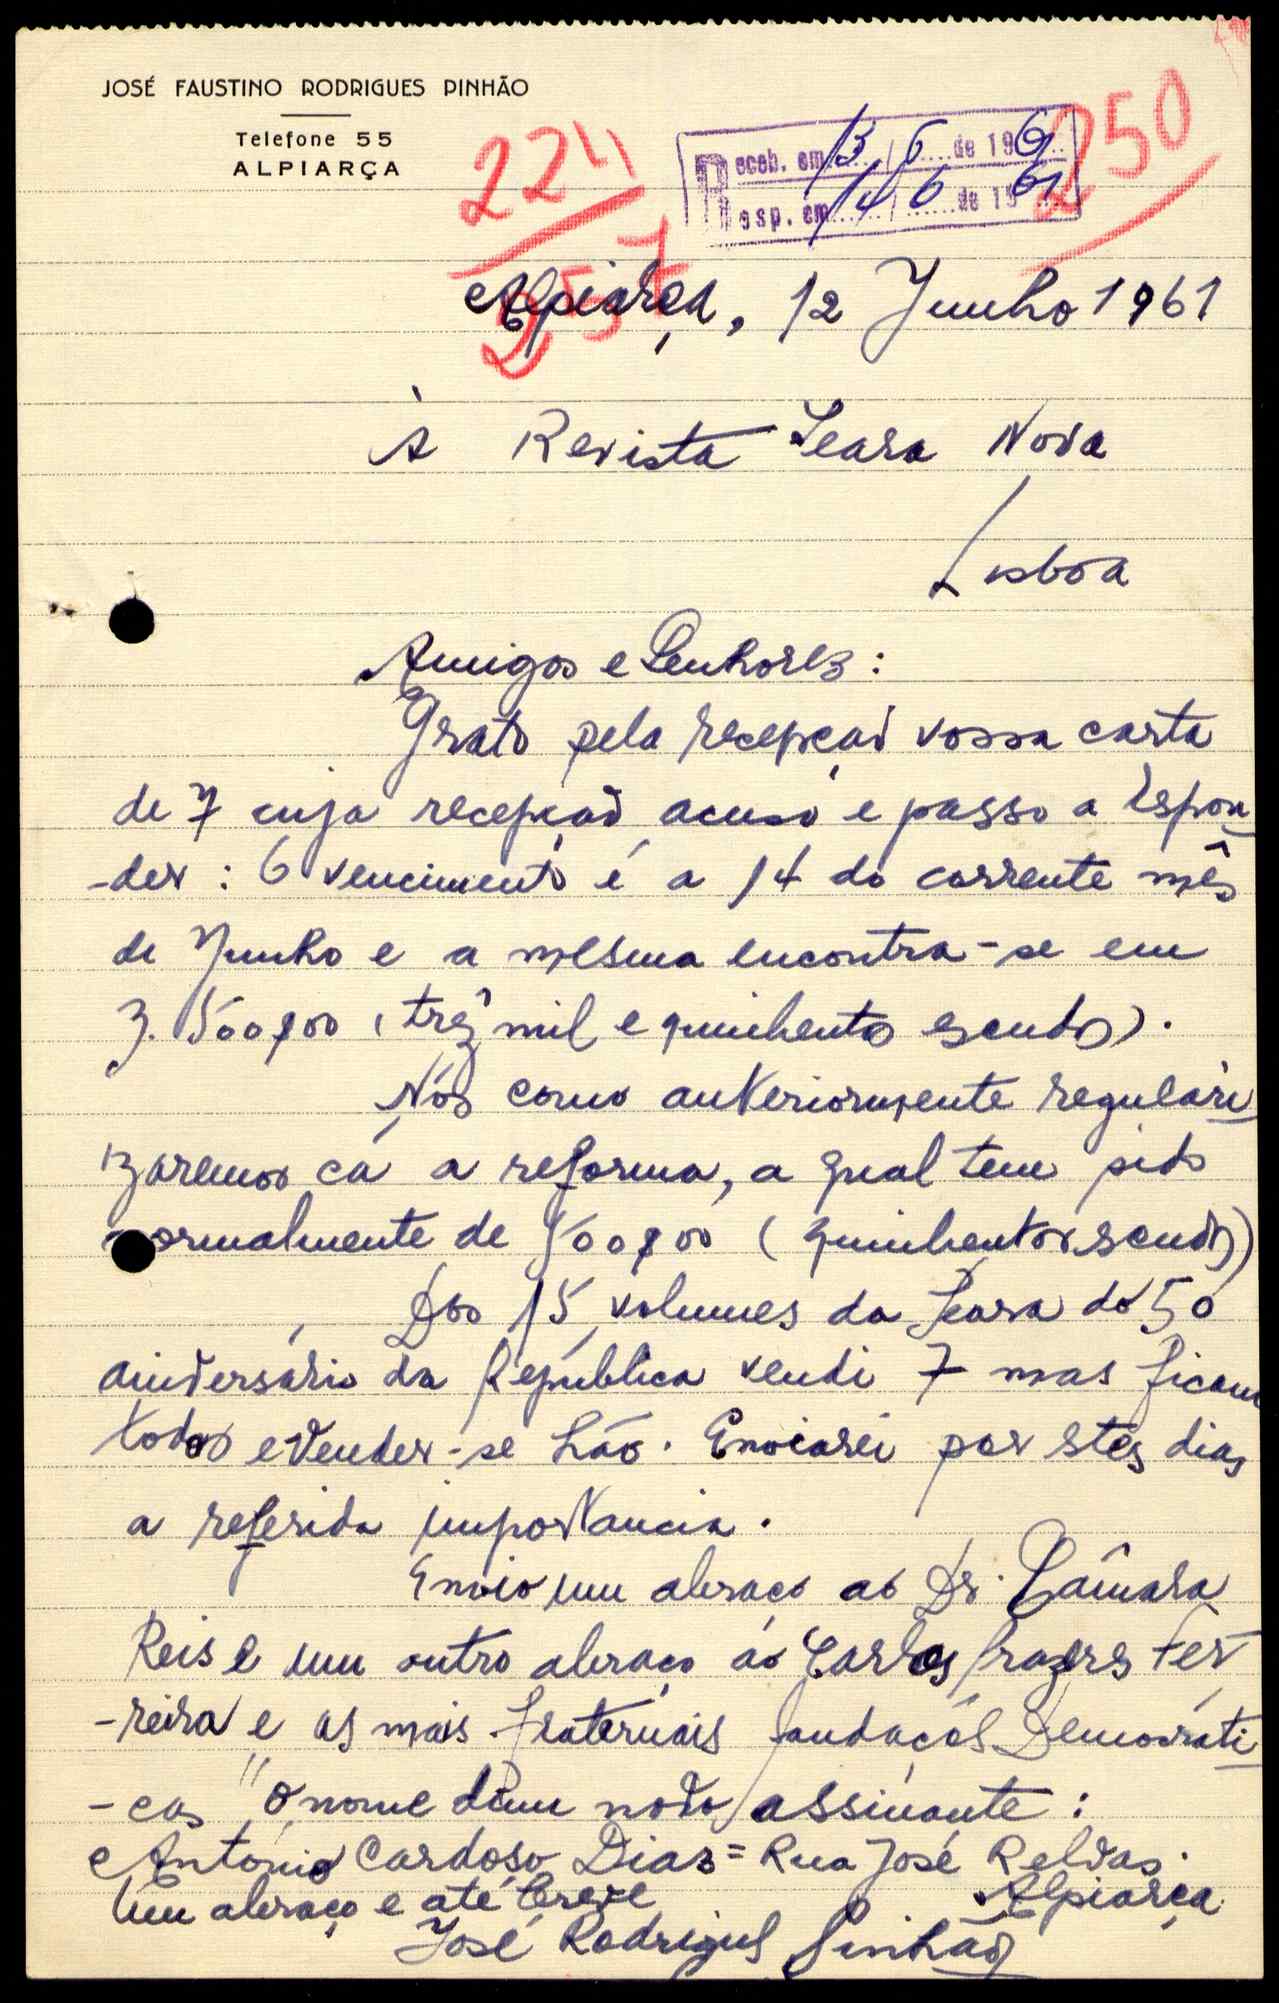 JOSÉ FAUSTINO RODRIGUES PINHÃO
Telefone 55
ALPIARÇA
224
250
257
Receb. em 13 / 6 de 1961
Resp. em 14 / 6 de 1961
Alpiarça, 12 Junho 1961
À Revista Seara Nova
Lisboa
Amigos e Senhores:
Grato pela recepção vossa carta
de 7 cuja recepção acuso e passo a respon
-der: O vencimento é a 14 do corrente mês
de Junho e a mesma encontra-se em
3.500$00 (três mil e quinhentos escudos).
Nós como anteriormente regulari
zaremos cá a reforma, a qual tem sido
normalmente de 500$00 (quinhentos escudos)
Dos 15 volumes da Seara do 50
aniversário da República vendi 7 mas ficam
todos e vender-se hão. Enviarei por estes dias
a referida importancia.
Envio um abraço ao Dr. Câmara
Reis e um outro abraço ao Carlos Fer
-reira e as mais fraternais saudações Democráti
-cas " O nome dum novo assinante:
António Cardoso Dias = Rua José Relvas.
Alpiarça
Um abraço e até breve
José Rodrigues Pinhão